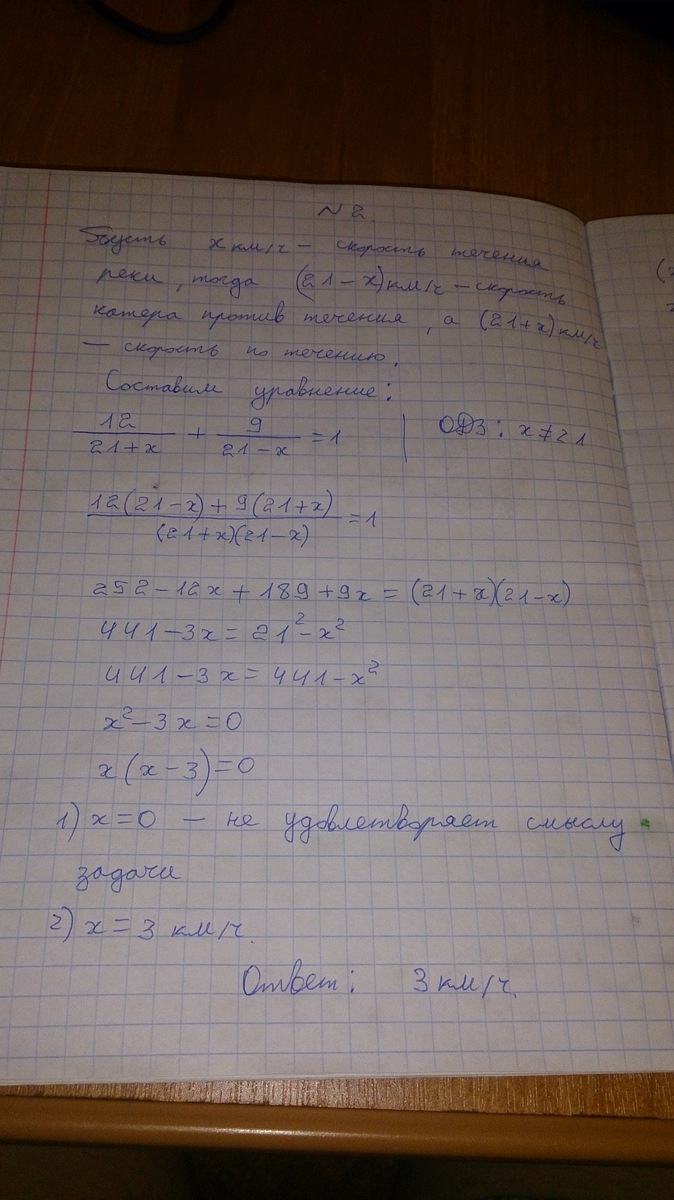 № 2
Пусть x км/ч – скорость течения
реки, тогда (21 – x) км/ч – скорость
катера против течения, а (21+x) км/ч
– скорость по течению.
Составим уравнение:
12/(21+x) + 9/(21–x) = 1 | ОДЗ: x ≠ 21
(12(21–x) + 9(21+x))/((21+x)(21–x)) = 1
252 – 12x + 189 + 9x = (21+x)(21–x)
441 – 3x = 21² – x²
441 – 3x = 441 – x²
x² – 3x = 0
x(x – 3) = 0
1) x = 0 – не удовлетворяет смыслу
задачи
2) x = 3 км/ч.
Ответ: 3 км/ч.